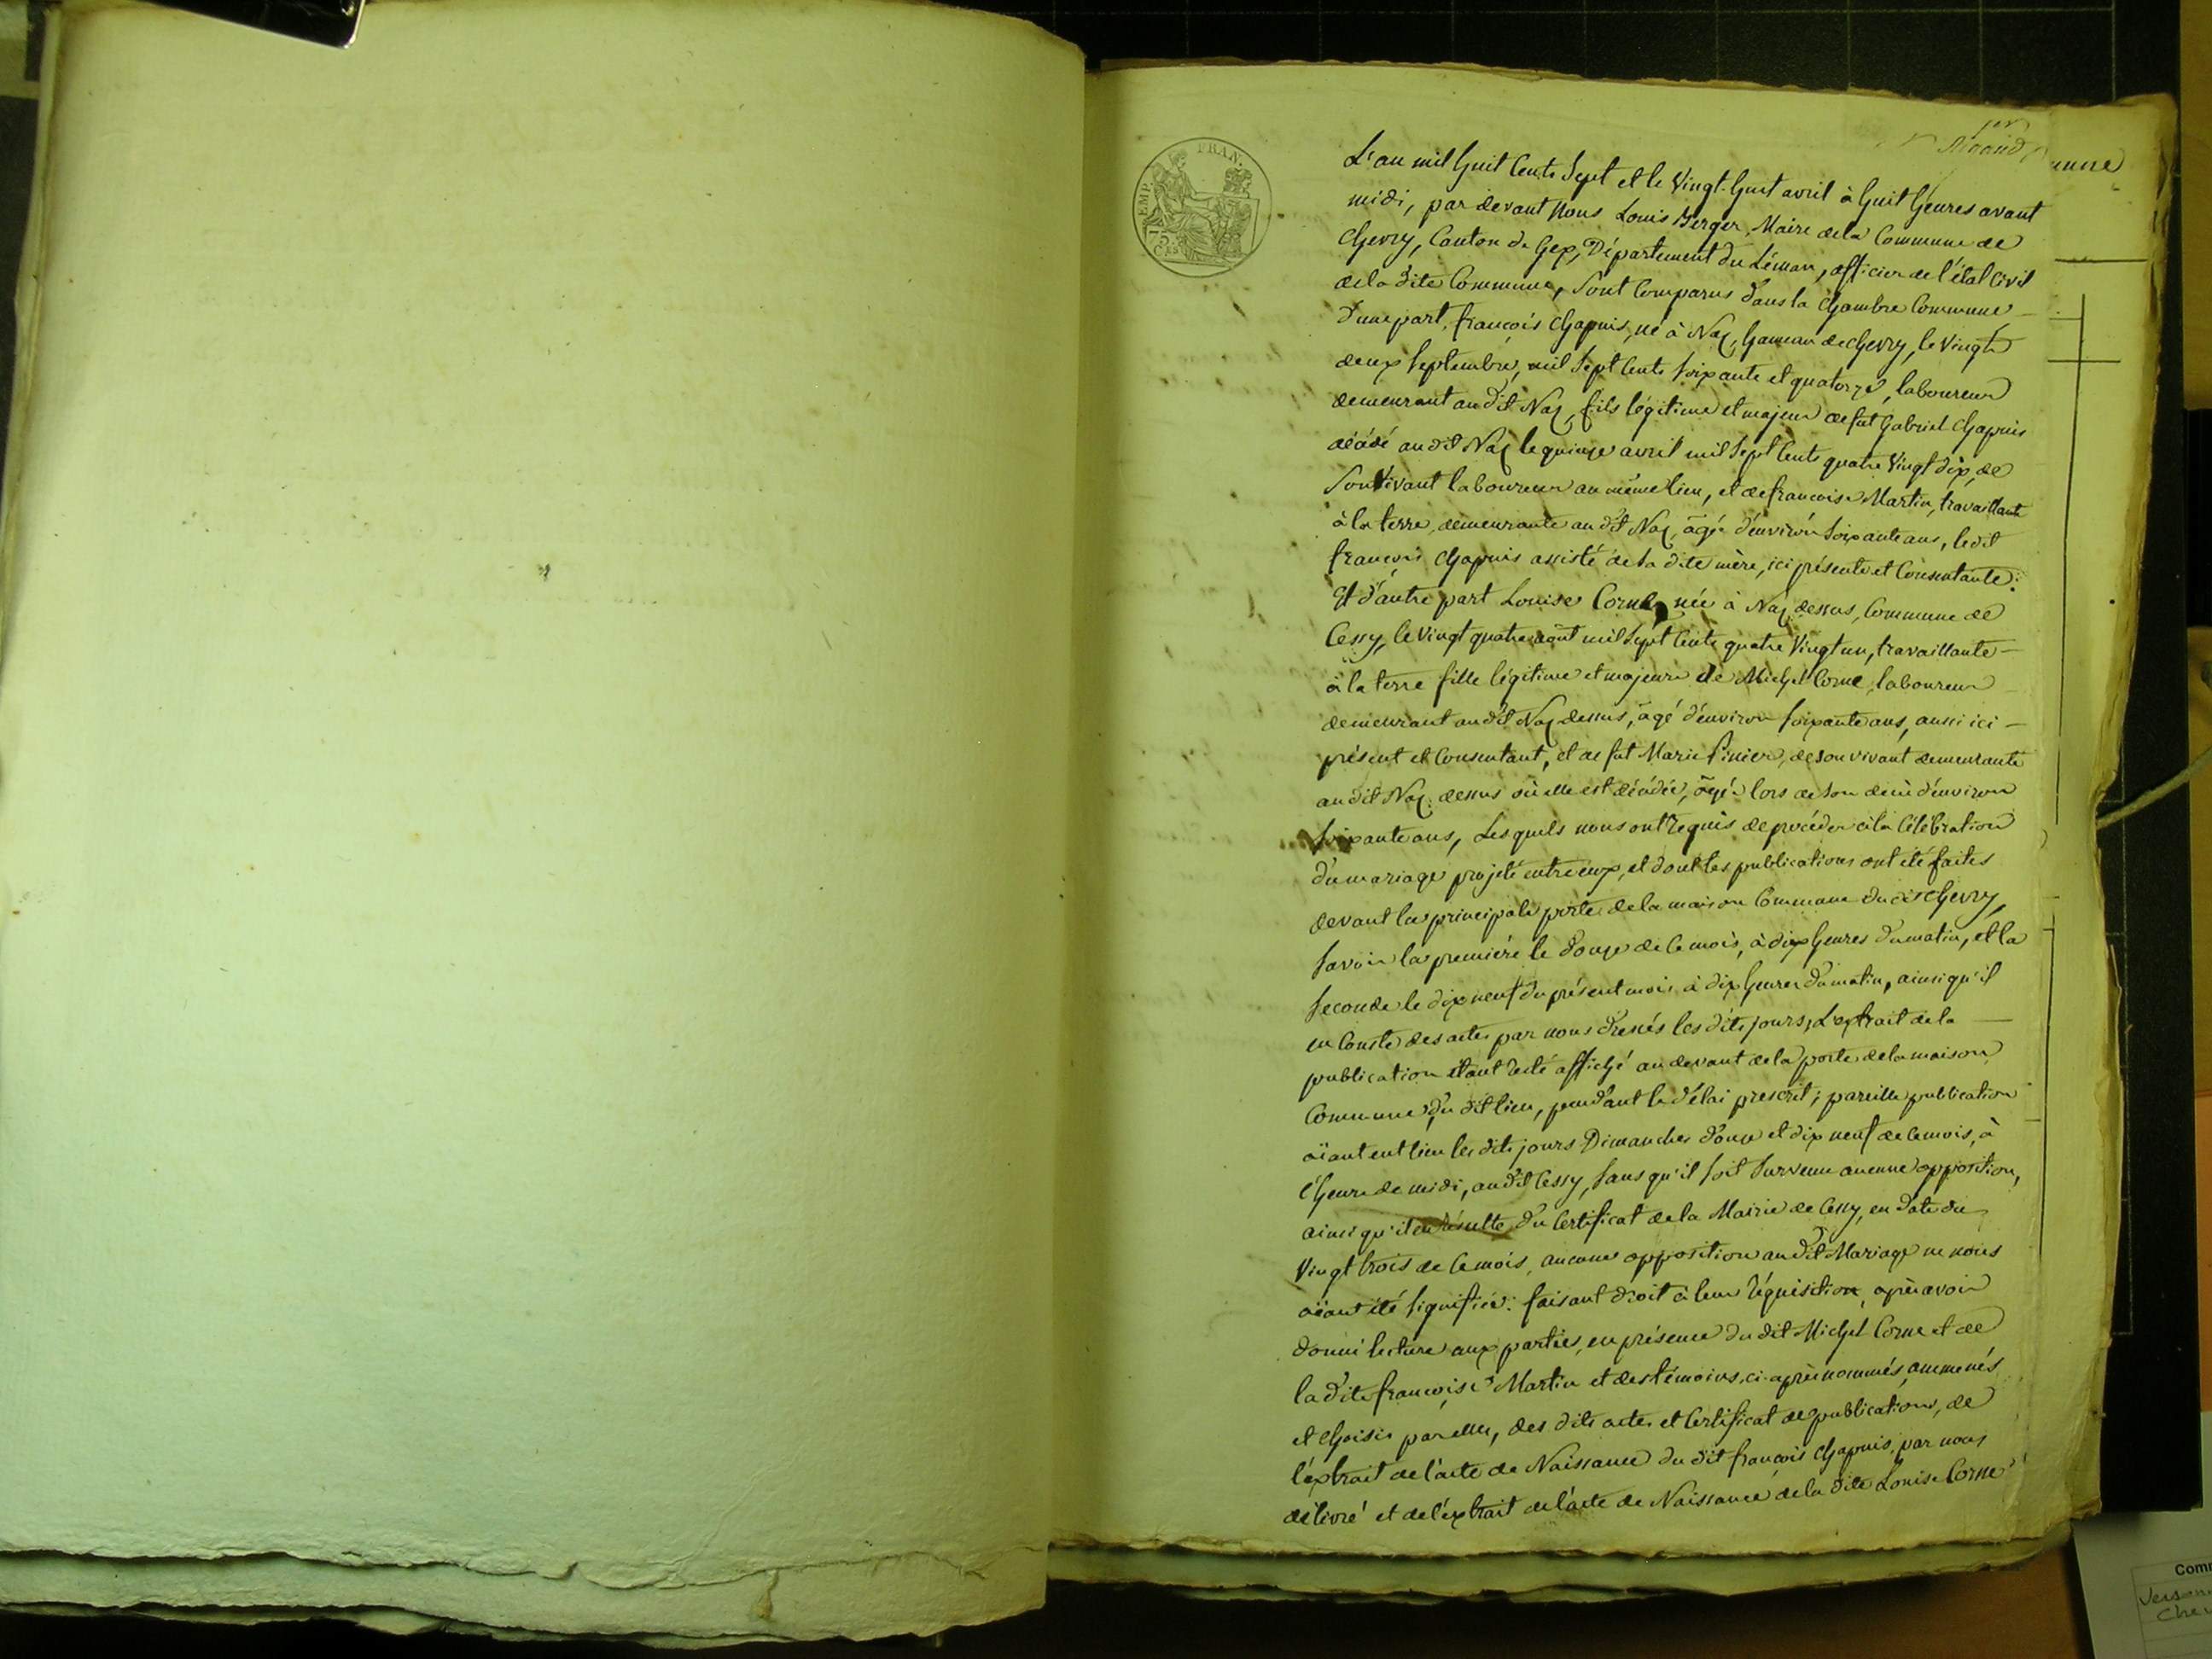 EMP. FRAN.
75
CES
1er
unne
L'an mil huit cents sept et le vingt-huit avril à huit heures avant
midi, par devant nous Louis Berger, Maire de la Commune de
Chevry, Canton de Gex, Département du Léman, officier de l'état civil
de la dite Commune, sont comparus dans la Chambre Commune
d'une part, françois Chapuis, né à Naz, hameau de Chevry, le vingt
deux septembre, mil sept cents soixante et quatorze, laboureur
demeurant au dit Naz, fils légitime et majeur de fut Gabriel Chapuis
décédé au dit Naz le quinze avril mil sept cents quatre vingt dix, de
son vivant laboureur au même lieu, et de francoise Martin, travaillante
à la terre, demeurante au dit Naz, agée d'environ soixante ans, le dit
françois Chapuis assisté de sa dite mère, ici présente et consentante:
Et d'autre part Louise Corne, née à Naz dessus, Commune de
Cessy, le vingt quatre août mil sept cents quatre vingt un, travaillante
à la terre fille légitime et majeure de Michel Corne, laboureur
demeurant au dit Naz dessus, âgé d'environ soixante ans, aussi ici
présent et consentant, et de fut Marie de son vivant demeurante
au dit Naz dessus où elle est décédée, âgée lors de son décès d'environ
soixante ans, Lesquels nous ont requis de procéder à la célébration
du mariage projeté entre eux, et dont les publications ont été faites
devant la principale porte de la maison Commune du dit Chevry,
savoir la première le douze de ce mois, à dix heures du matin, et la
seconde le dix neuf du présent mois à dix heures du matin, ainsi qu'il
en conste des actes par nous dressés les dits jours, L'extrait de la
publication étant resté affiché au devant de la porte de la maison
Commune du dit lieu, pendant le délai prescrit; pareille publication
aïant eut lieu les dits jours Dimanches douze et dix neuf de ce mois, à
l'heure de midi, au dit Cessy, sans qu'il soit survenu aucune opposition,
ainsi qu'il en résulte du Certificat de la Mairie de Cessy, en date du
vingt trois de ce mois, aucune opposition au dit Mariage ne nous
aïant été signifiée: faisant droit à leur réquisition, après avoir
donné lecture aux parties, en présence du dit Michel Corne et de
la dite françoise Martin et des témoins, ci-après nommés, ammenés
et choisis par elles, des dits actes et certificat de publications, de
l'extrait de l'acte de Naissance du dit françois Chapuis, par nous
délivré et de l'extrait de l'acte de Naissance de la dite Louise Corne
Com
Che